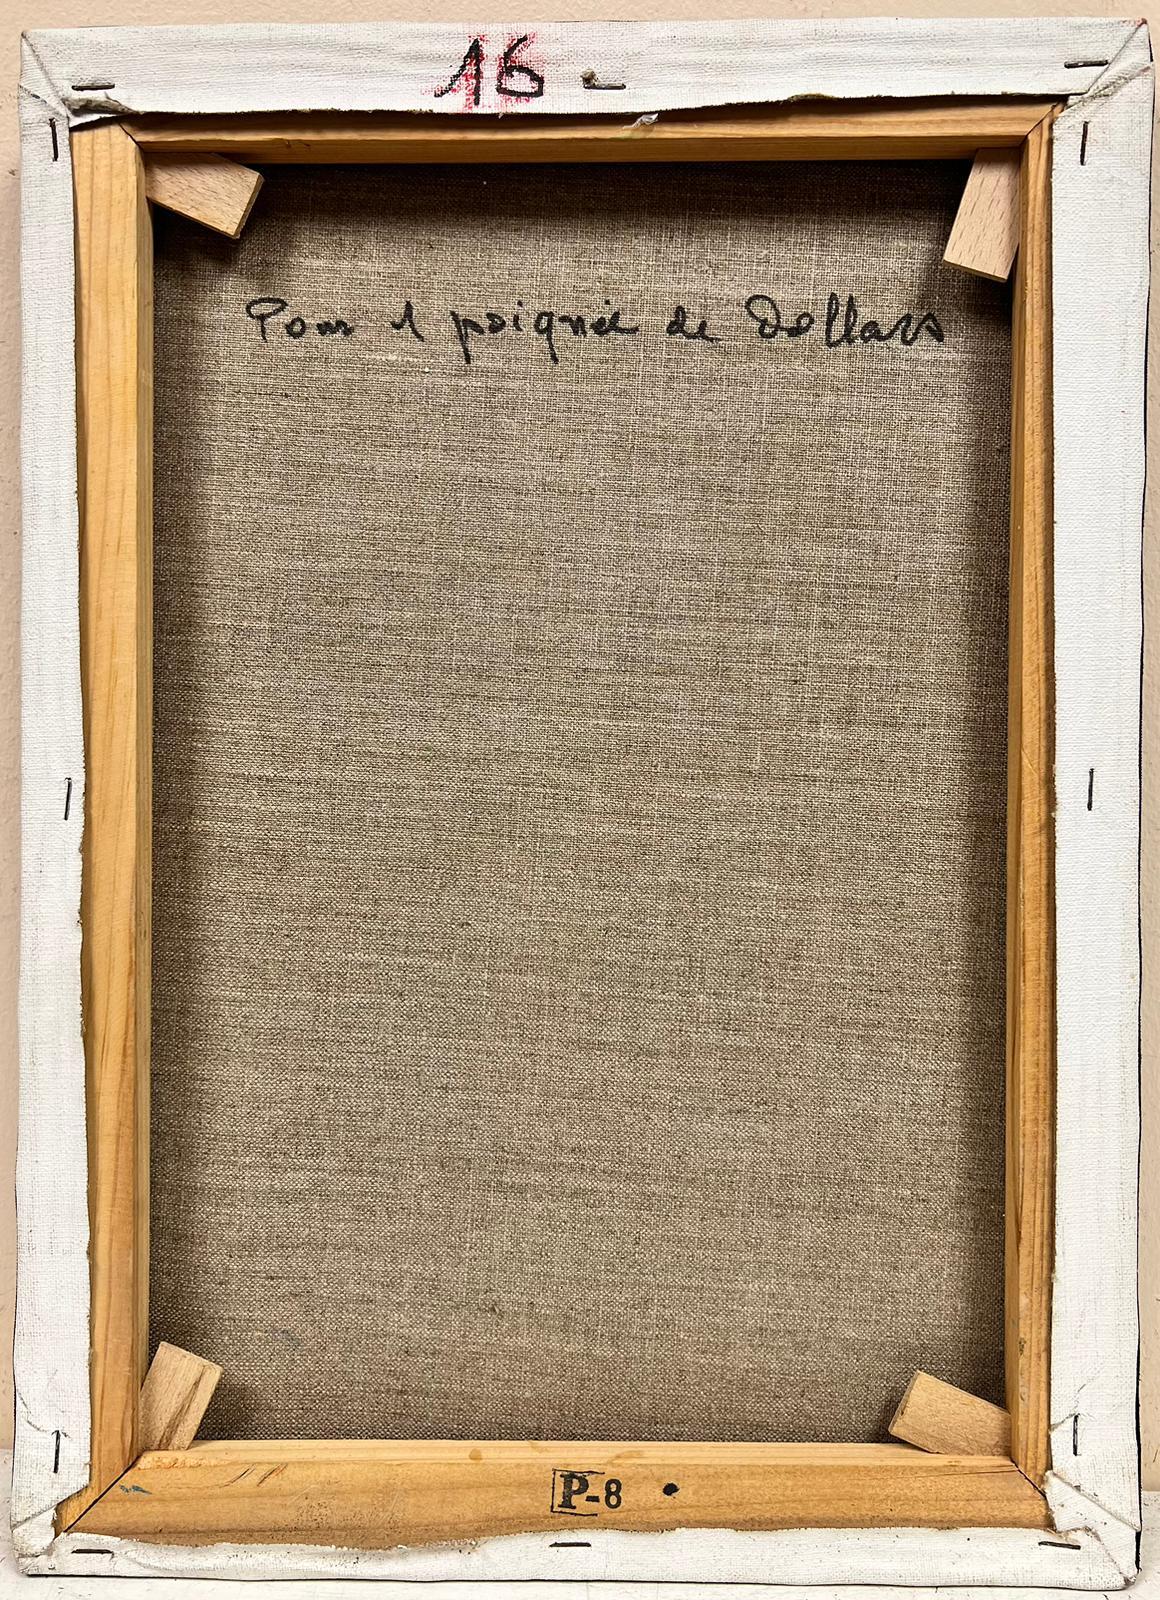 16
Pour 1 poignée de Dollars
P-8